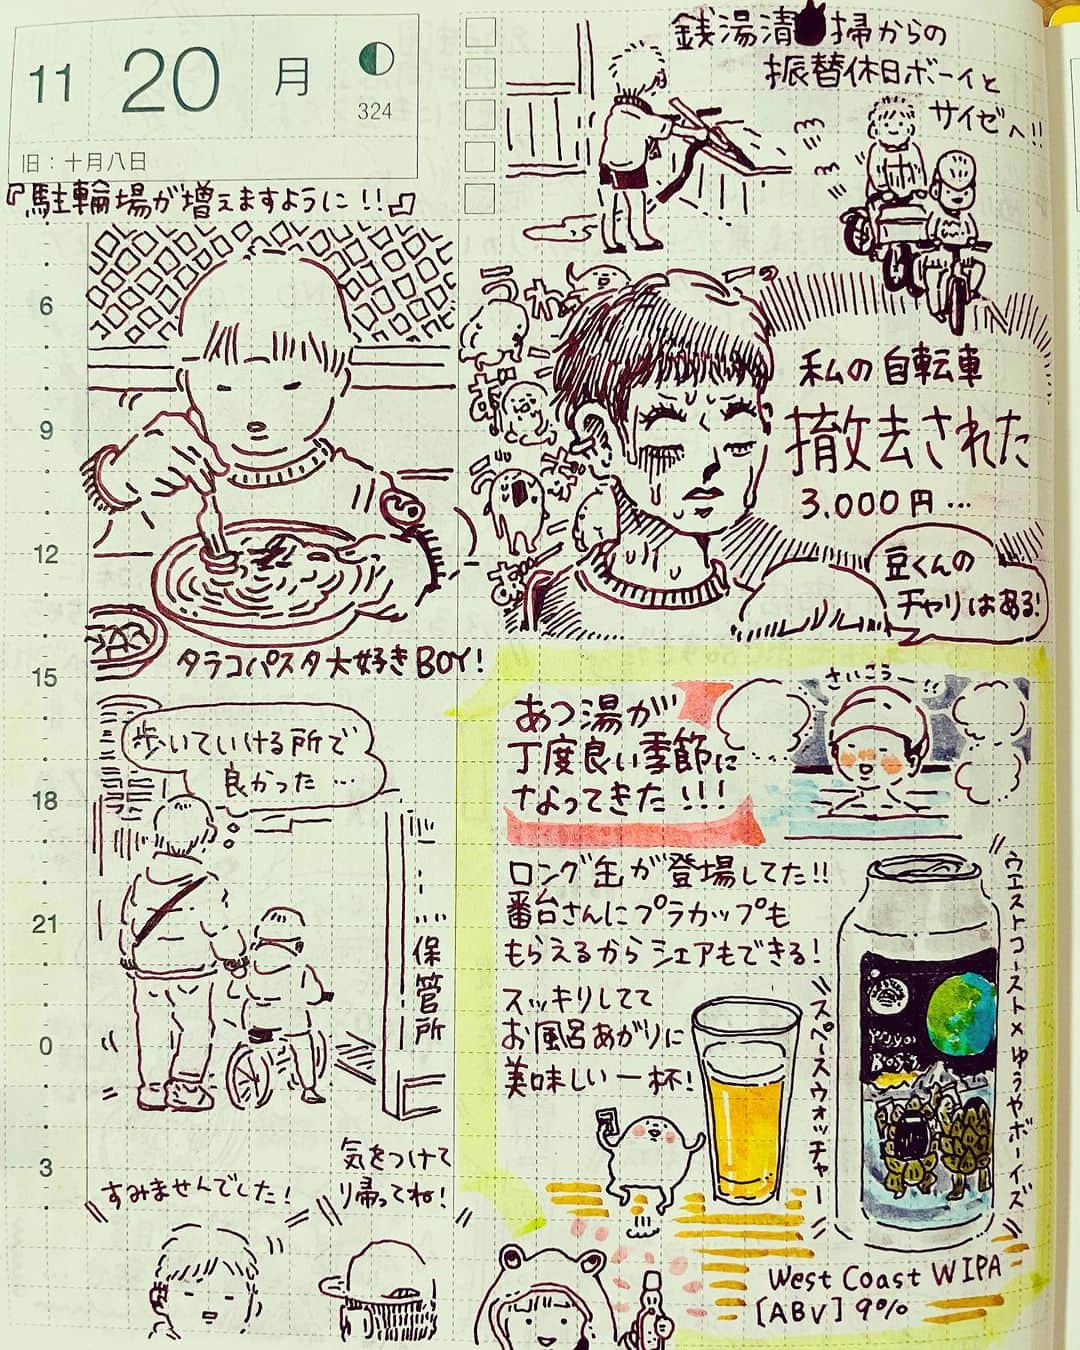 11 20 月
324
旧：十月八日
『駐輪場が増えますように!!』
銭湯清掃からの
振替休日ボーイと
サイゼへ!!
6
9
12
15
18
21
0
3
私の自転車
撤去された
3.000円…
豆くんの
チャリはある!
タラコパスタ大好きBOY!
歩いていける所で
良かった…
保管所
すみませんでした!
気をつけて
帰ってね!
さいこうー!!
あつ湯が
丁度良い季節に
なってきた!!!
ロング缶が登場してた!!
番台さんにプラカップも
もらえるからシェアもできる!
スッキリしてて
お風呂あがりに
美味しい一杯!
スペースウォッチャー
ウエストコースト×ゆうやボーイズ
West Coast WIPA
[ABV] 9%